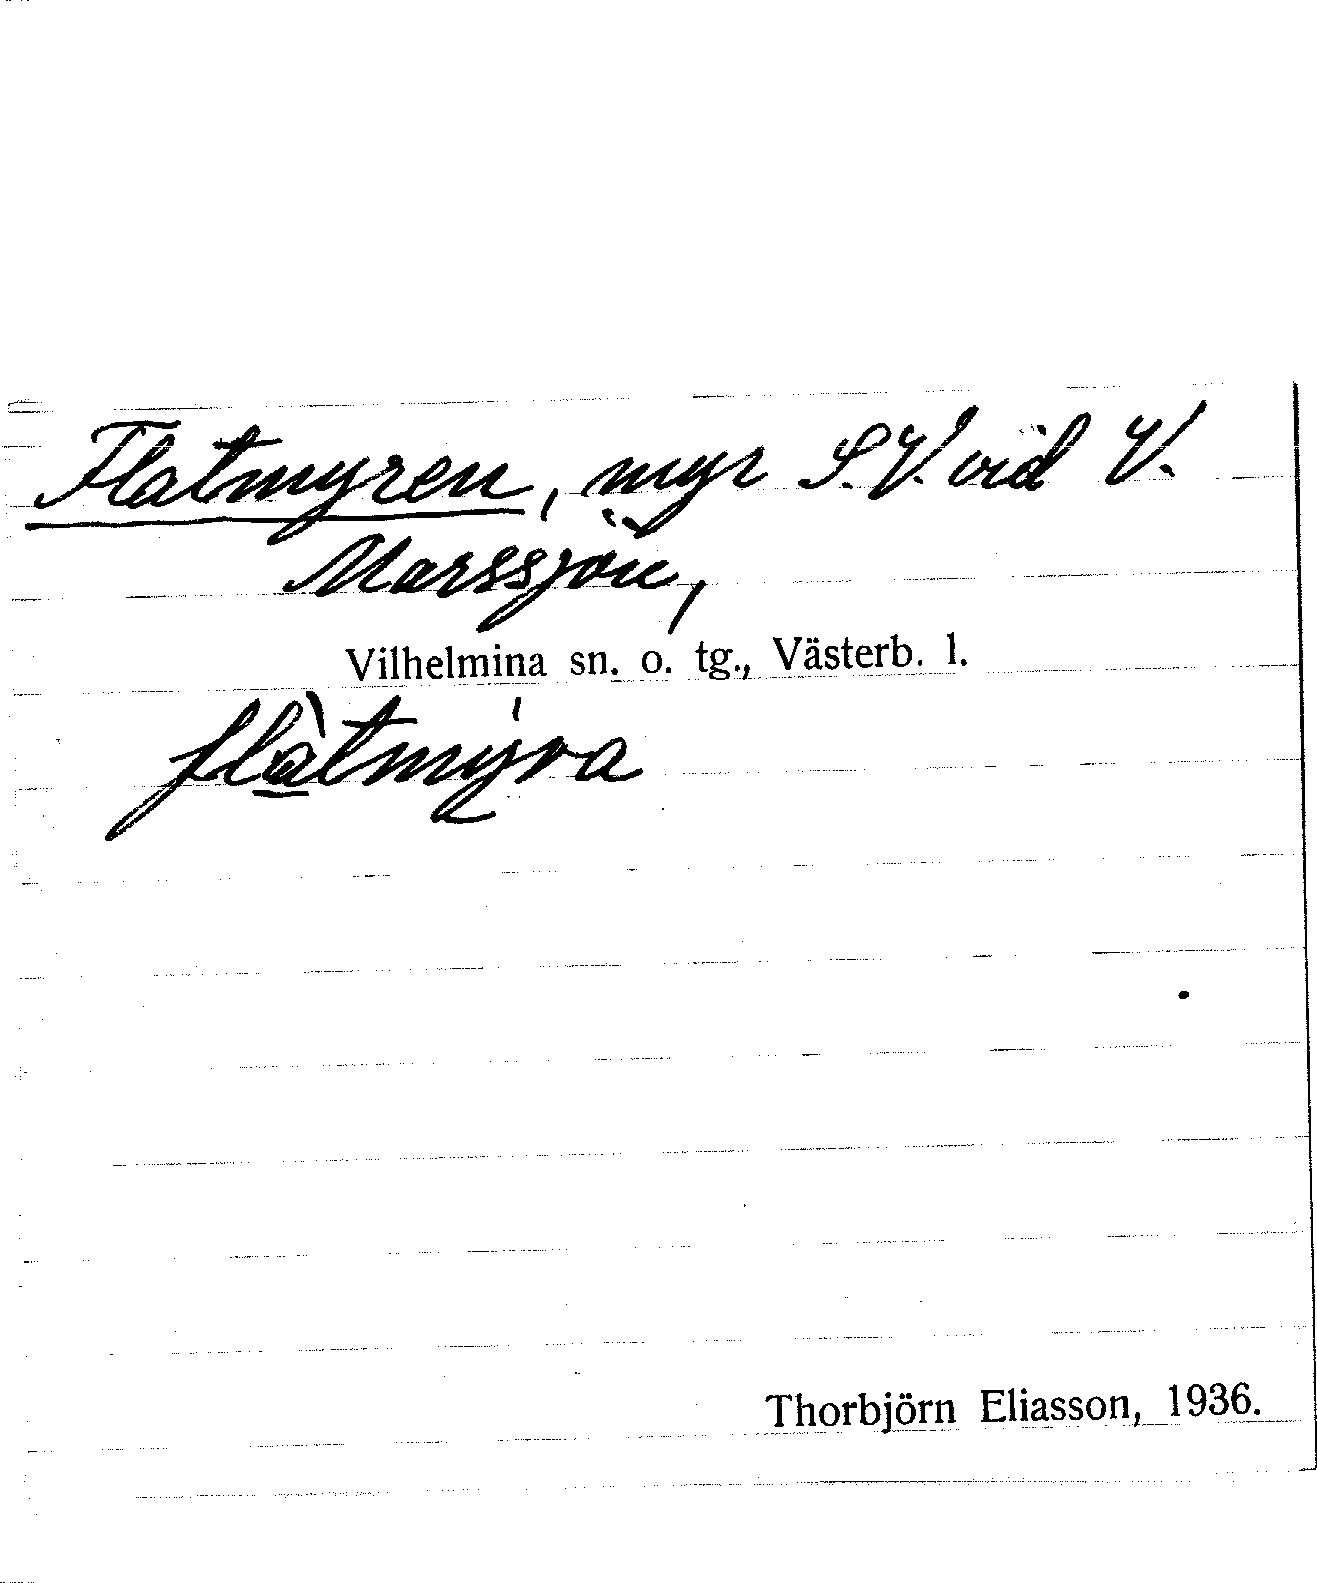 Flatmyren, myr S.V. vid V.
Marssjön,
Vilhelmina sn. o. tg., Västerb. l.
flà̱tmýra
Thorbjörn Eliasson, 1936.